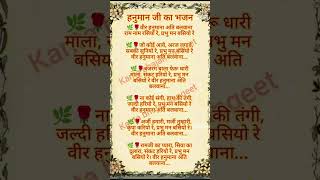 हनुमान जी का भजन
वीर हनुमाना अति बलवाना
राम नाम रसियो रे, प्रभु मन
बसियो रे
जो कोई आवे, अरज लगावे,
सबकी सुनियो रे, प्रभु मन बसियो रे
वीर हनुमाना अति बलवाना...
बजरंग बाला फेरू थारी
माला, संकट हरियो रे, प्रभु मन
बसियो रे वीर हनुमाना अति
बलवाना...
ना कोई संगी, की तंगी,
जल्दी हरियो रे, प्रभु मन बसियो रे
वीर हनुमाना अति बलवाना...
अर्जी हमारी, मर्जी तुम्हारी,
कृपा करियो रे, प्रभु मन
बसियो रे वीर हनुमाना अति
बलवाना...
रामजी का प्यारा, सिया का
दुलारा, संकट हरियो रे, प्रभु मन
बसियो रे। वीर हनुमाना अति
बलवाना...